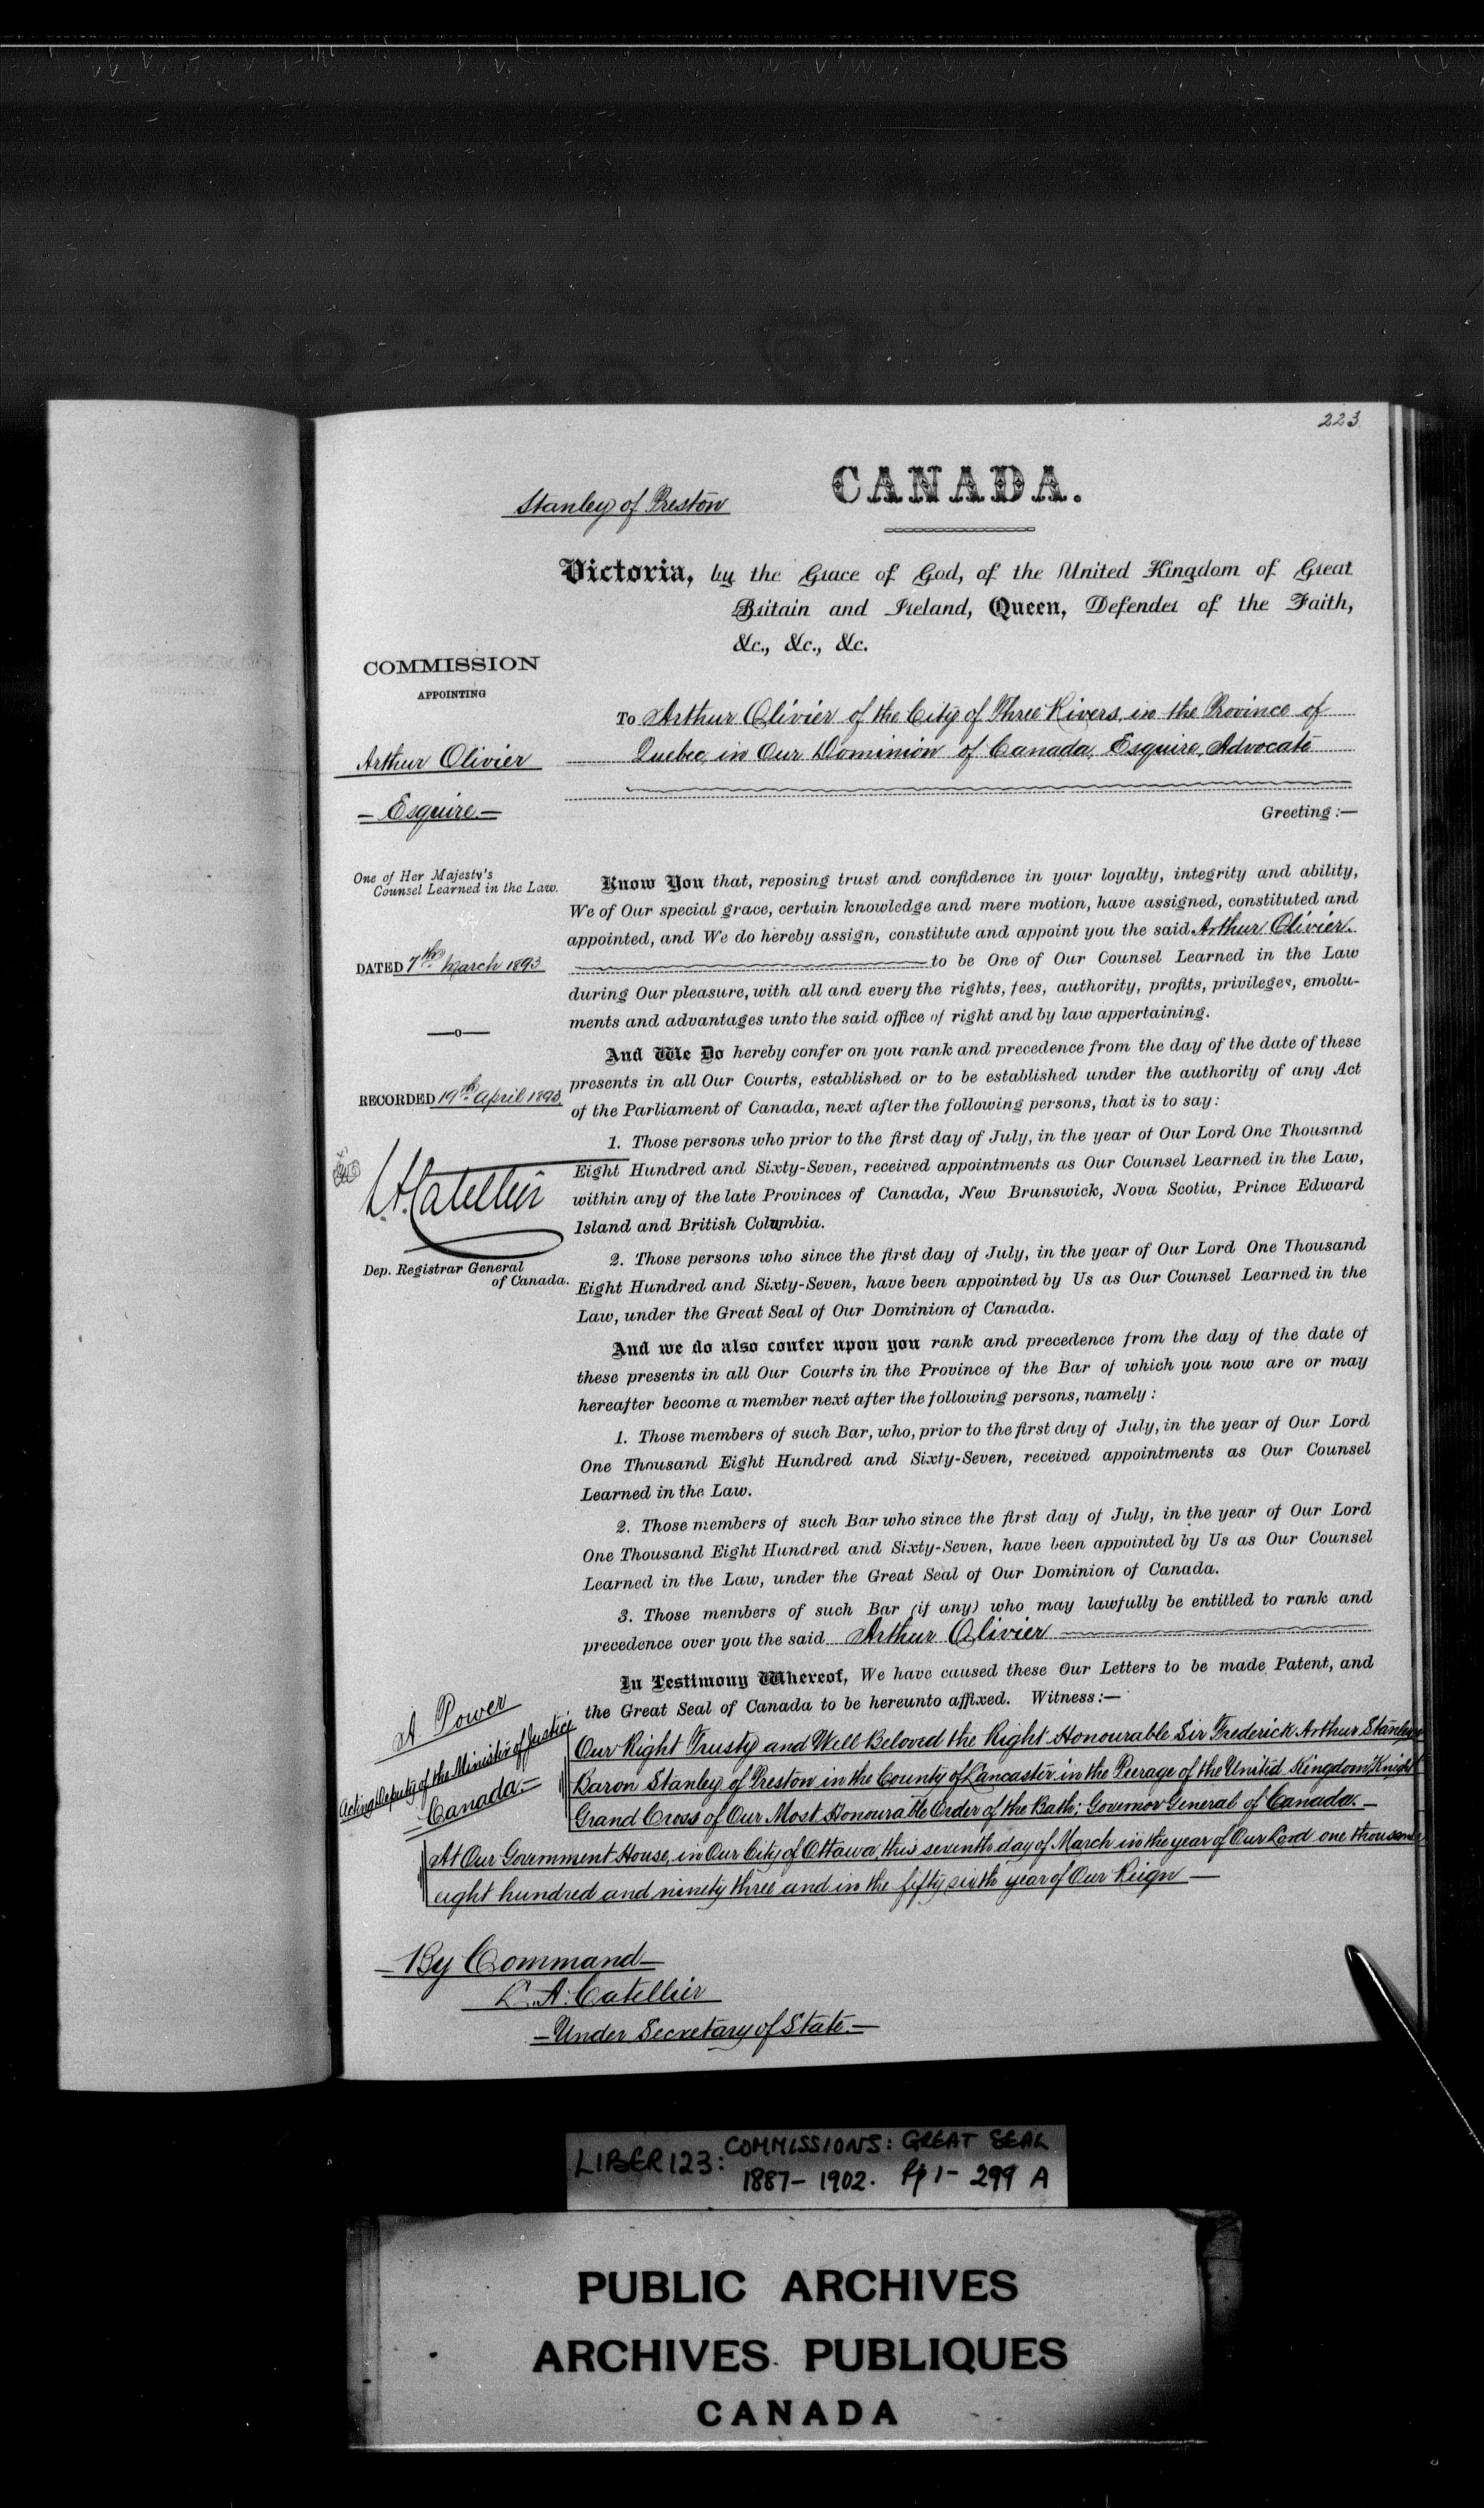 223
CANADA.
Stanley of Preston
Victoria, by the Grace of God, of the United Kingdom of Great
Britain and Ireland, Queen, Defender of the Faith,
&c., &c., &c.
COMMISSION
APPOINTING
Arthur Olivier
— Esquire —
One of Her Majesty's
Counsel Learned in the Law.
DATED 7th March 1893
—o—
RECORDED 19th April 1893
L.A. Catellier
Dep. Registrar General
of Canada.
To Arthur Olivier of the City of Three Rivers, in the Province of
Quebec, in Our Dominion of Canada, Esquire, Advocate
Greeting :—
Know You that, reposing trust and confidence in your loyalty, integrity and ability,
We of Our special grace, certain knowledge and mere motion, have assigned, constituted and
appointed, and We do hereby assign, constitute and appoint you the said Arthur Olivier.
to be One of Our Counsel Learned in the Law
during Our pleasure, with all and every the rights, fees, authority, profits, privileges, emolu-
ments and advantages unto the said office of right and by law appertaining.
And We Do hereby confer on you rank and precedence from the day of the date of these
presents in all Our Courts, established or to be established under the authority of any Act
of the Parliament of Canada, next after the following persons, that is to say:
1. Those persons who prior to the first day of July, in the year of Our Lord One Thousand
Eight Hundred and Sixty-Seven, received appointments as Our Counsel Learned in the Law,
within any of the late Provinces of Canada, New Brunswick, Nova Scotia, Prince Edward
Island and British Columbia.
2. Those persons who since the first day of July, in the year of Our Lord One Thousand
Eight Hundred and Sixty-Seven, have been appointed by Us as Our Counsel Learned in the
Law, under the Great Seal of Our Dominion of Canada.
And we do also confer upon you rank and precedence from the day of the date of
these presents in all Our Courts in the Province of the Bar of which you now are or may
hereafter become a member next after the following persons, namely :
1. Those members of such Bar, who, prior to the first day of July, in the year of Our Lord
One Thousand Eight Hundred and Sixty-Seven, received appointments as Our Counsel
Learned in the Law.
2. Those members of such Bar who since the first day of July, in the year of Our Lord
One Thousand Eight Hundred and Sixty-Seven, have been appointed by Us as Our Counsel
Learned in the Law, under the Great Seal of Our Dominion of Canada.
3. Those members of such Bar (if any) who may lawfully be entitled to rank and
precedence over you the said Arthur Olivier
In Testimony Whereof, We have caused these Our Letters to be made Patent, and
the Great Seal of Canada to be hereunto affixed. Witness:—
A Power
Acting Deputy of the Minister of Justice
Canada.—
Our Right Trusty and Well Beloved the Right Honourable Sir Frederick Arthur Stanley
Baron Stanley of Preston in the County of Lancaster in the Peerage of the United Kingdom Knight
Grand Cross of Our Most Honourable Order of the Bath; Governor General of Canada.—
At Our Government House, in Our City of Ottawa, this seventh day of March in the year of Our Lord one thousand
eight hundred and ninety three and in the fifty sixth year of Our Reign —
— By Command —
L. A. Catellier
— Under Secretary of State.—
LIBER 123: COMMISSIONS: GREAT SEAL
1887 - 1902. Pp 1 - 299 A
PUBLIC ARCHIVES
ARCHIVES PUBLIQUES
CANADA